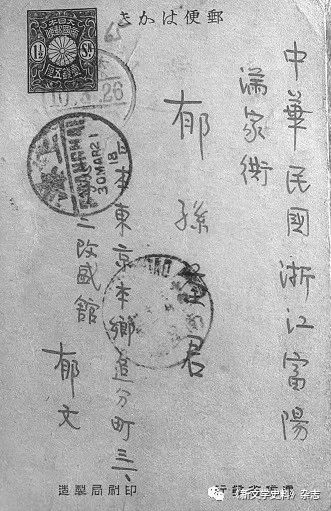 郵便はかき
1½ Sn
中華民國浙江富陽
滿家衖
郁孫荃君
日本東京本鄉追分町三一
改盛館
郁文
30MAR21
18
印刷局製造
《新文学史料》杂志